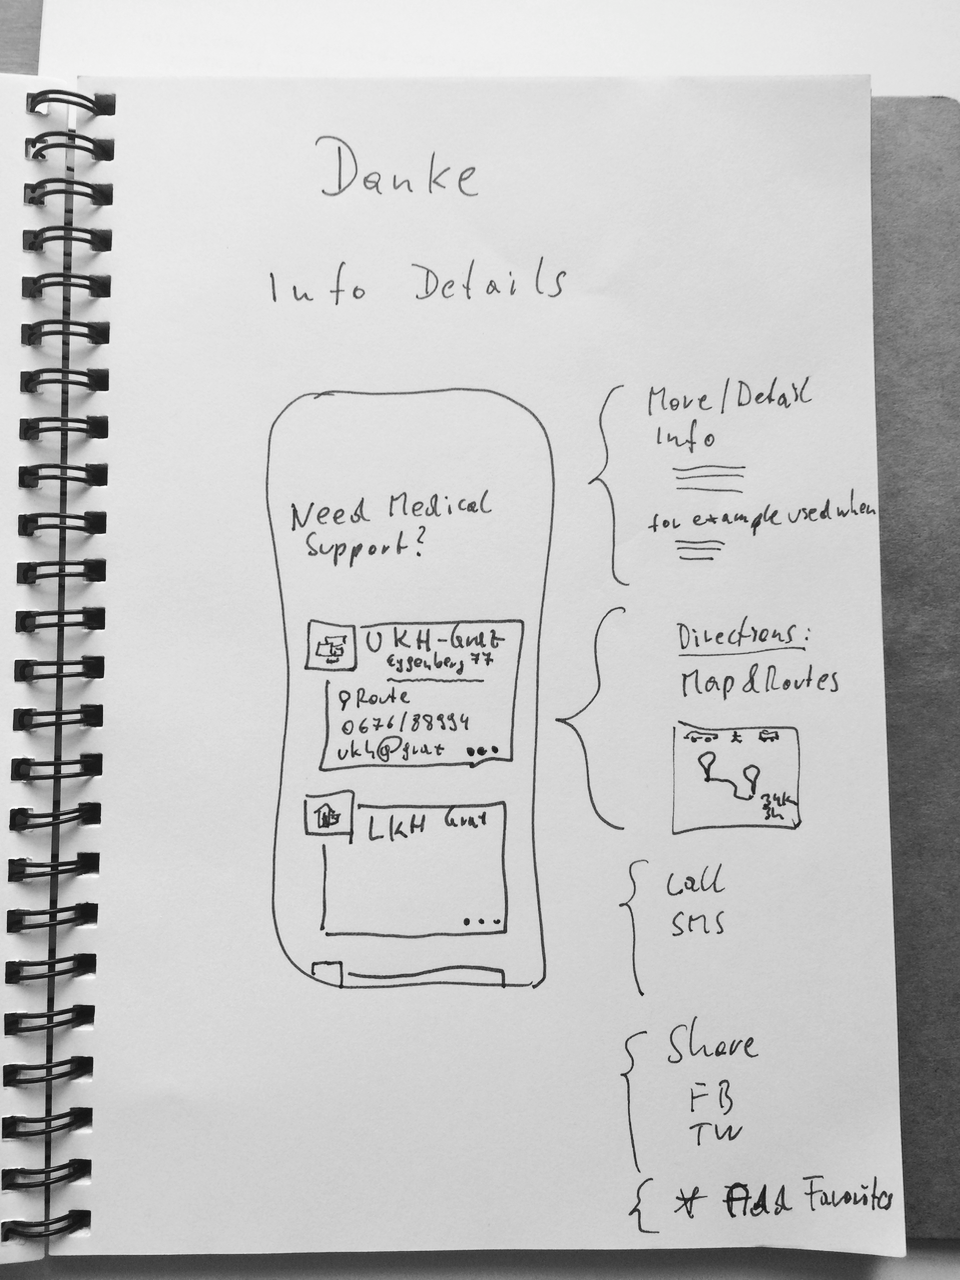 Danke
Info Details
Need Medical
Support?
UKH-Graz
Eggenberg 77
Route
0676/88994
ukh@graz
...
LKH Graz
...
More/Detail
Info
for example used when
Directions:
Map & Routes
34K
3h
Call
SMS
Share
FB
TW
* Add Favorites